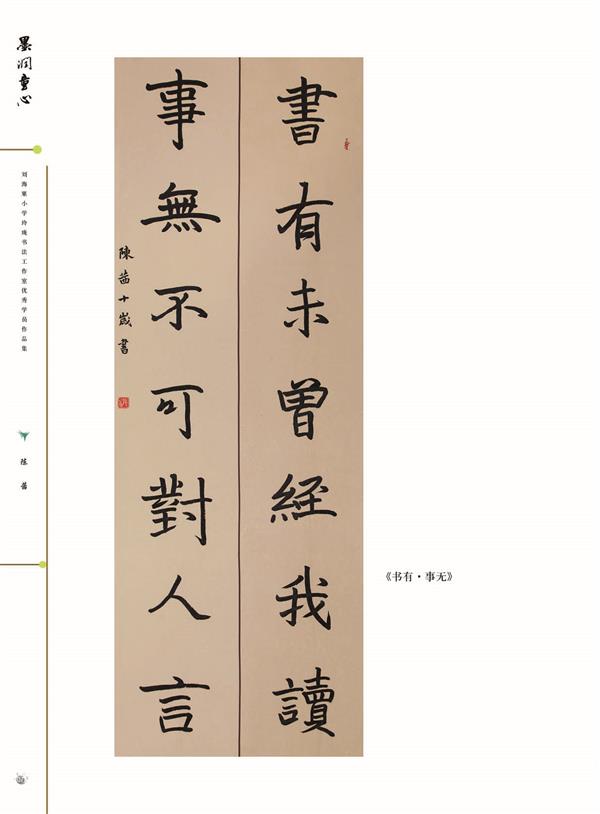 墨润童心
刘海粟小学玲珑书法工作室优秀学员作品集
陈茜
書有未曾經我讀
事無不可對人言
陳茜十歲書
《书有·事无》